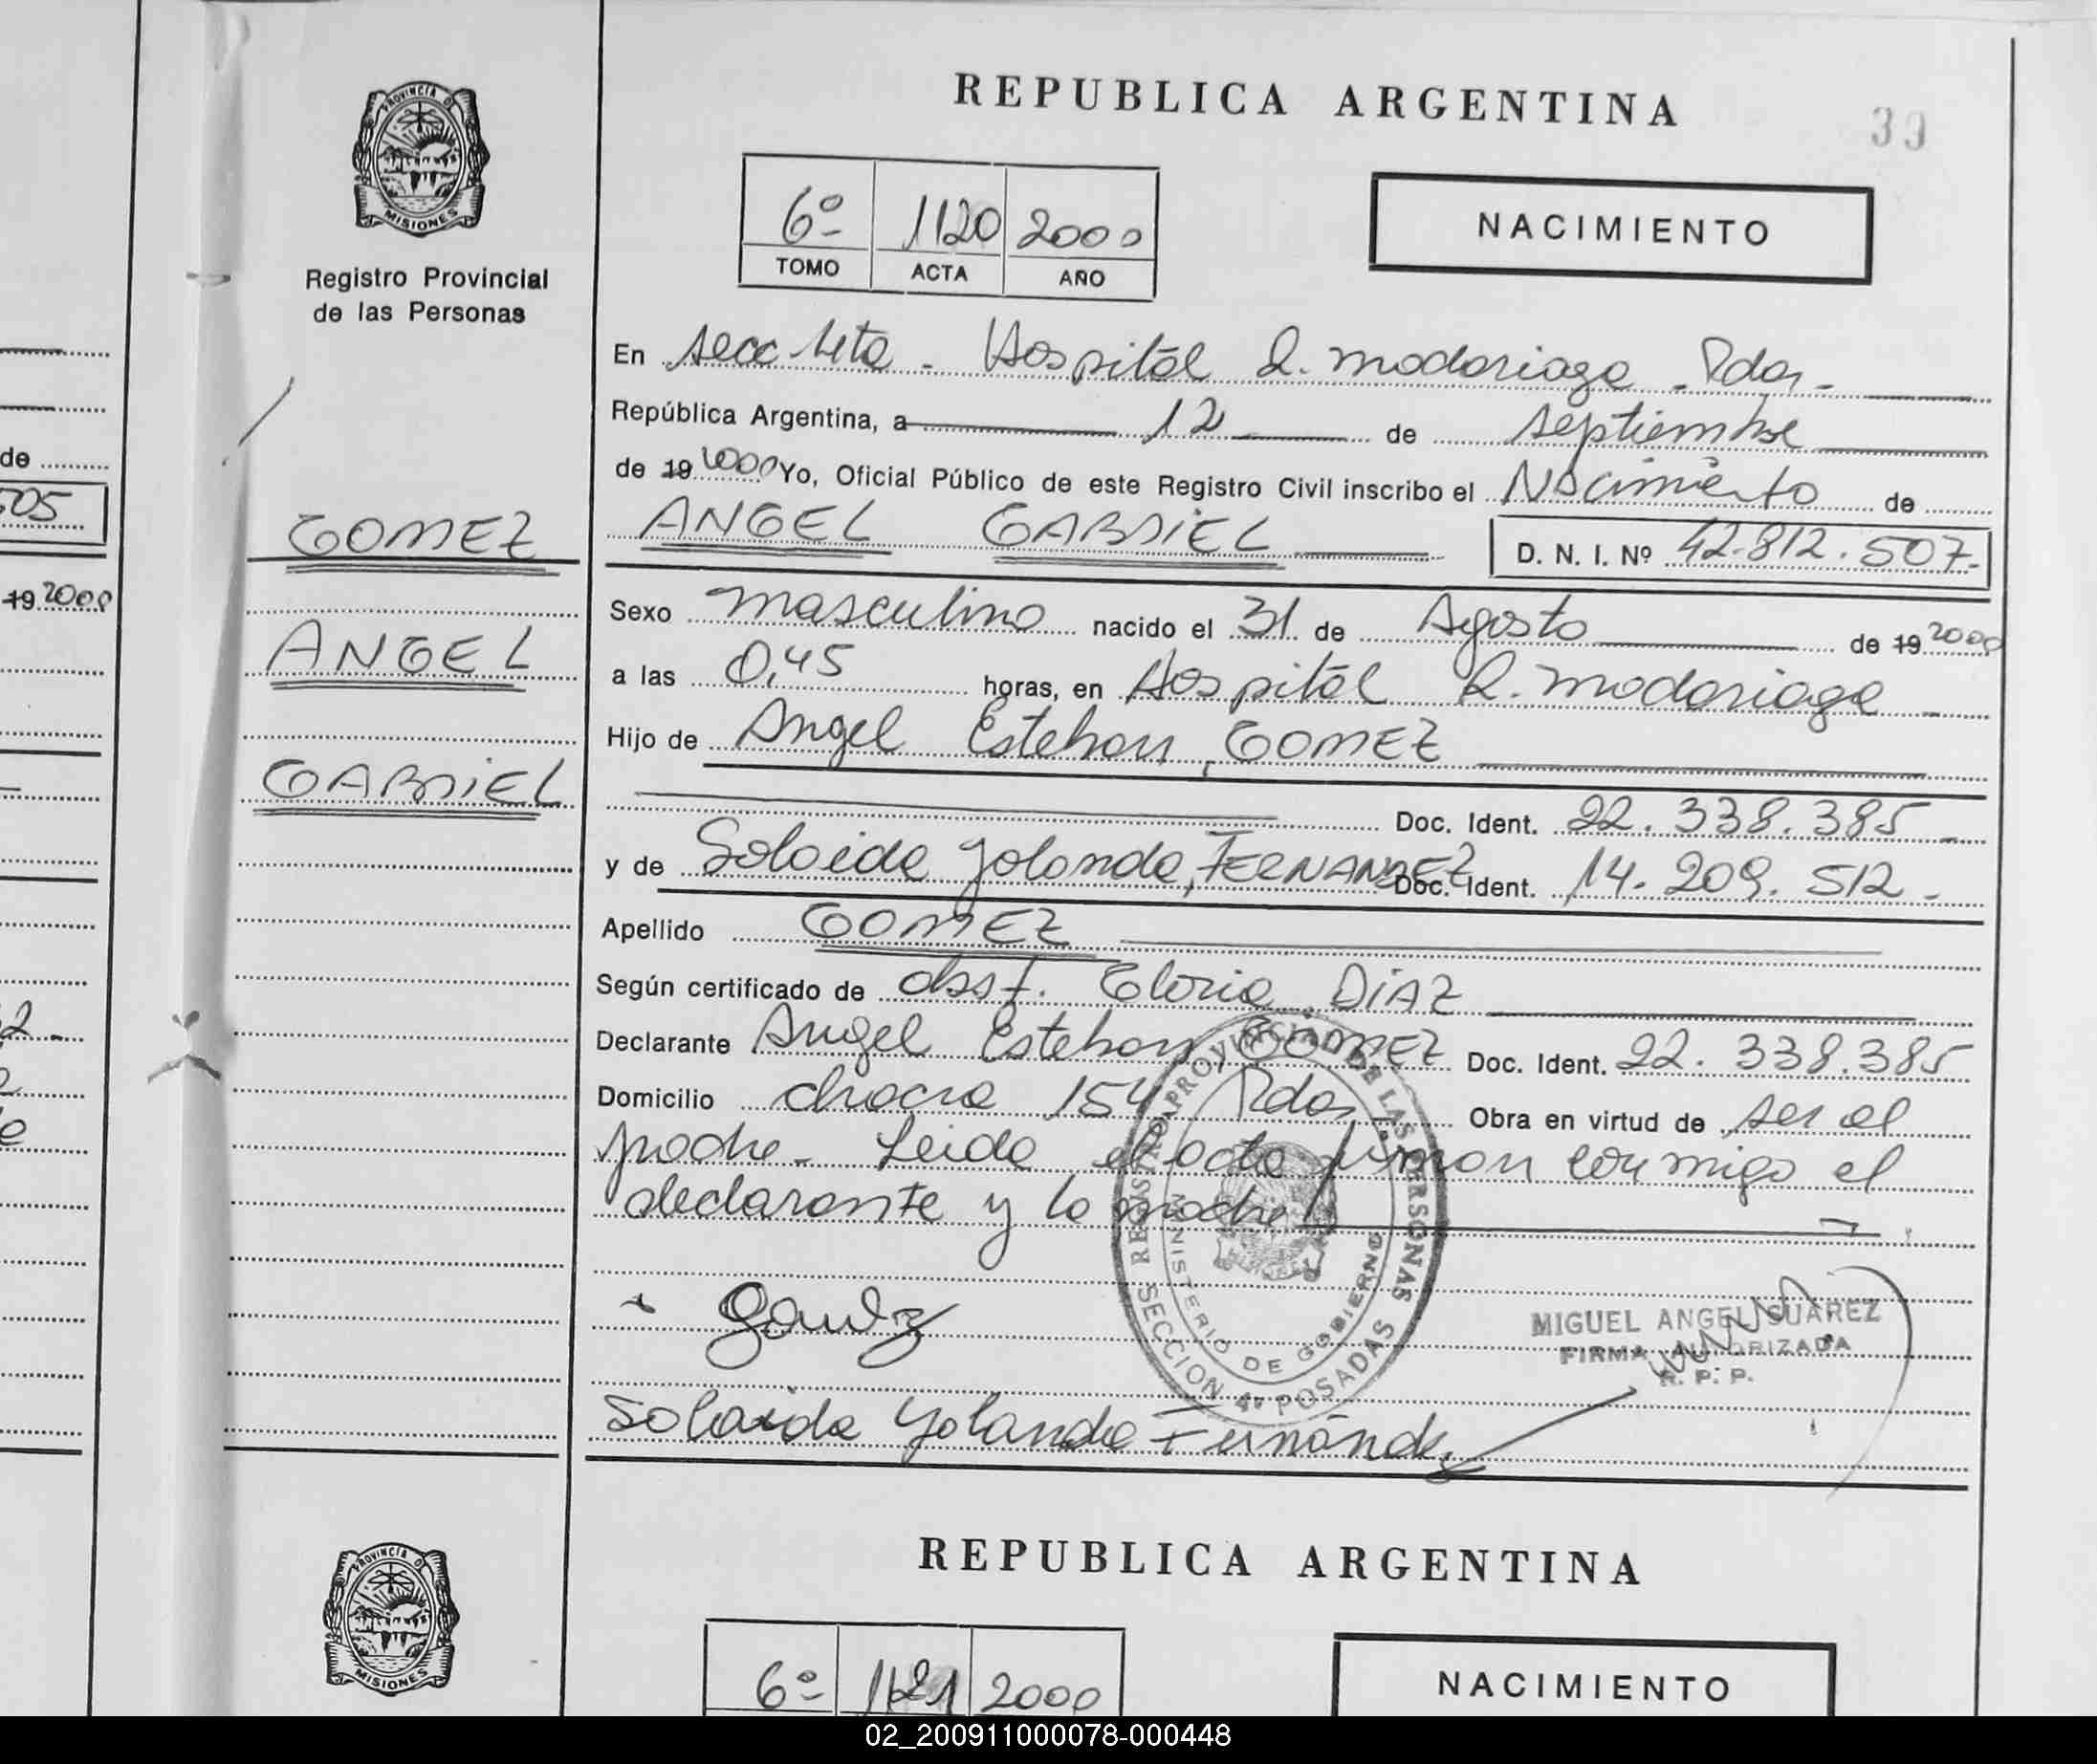 REPUBLICA ARGENTINA
39
PROVINCIA D
MISIONES
Registro Provincial
de las Personas
6º 1120 2000
TOMO ACTA AÑO
NACIMIENTO
En secc 4ta - Hospital R. Madariaga - Pdas -
República Argentina, a 12 de septiembre
de 19 2000 Yo, Oficial Público de este Registro Civil inscribo el Nacimiento de
GOMEZ
ANGEL GABRIEL
D. N. I. Nº 42.812.507.-
Sexo masculino nacido el 31 de Agosto de 19 2000
ANGEL
a las 0,45 horas, en Hospital R. Madariaga -
Hijo de Angel Esteban, GOMEZ
GABRIEL
Doc. Ident. 22.338.385 -
y de Solaida Yolanda, FERNANDEZ Doc. Ident. 14.209.512 -
Apellido GOMEZ
Según certificado de obst. Gloria DIAZ
Declarante Angel Esteban GOMEZ Doc. Ident. 22.338.385
Domicilio chacra 154 Pdas Obra en virtud de ser el
padre - Leida el acta firman conmigo el
declarante y la madre
REGISTRO PROVINCIAL DE LAS PERSONAS
MINISTERIO DE GOBIERNO
SECCION 4ª POSADAS
MIGUEL ANGEL SUAREZ
FIRMA AUTORIZADA
R. P. P.
Solaida Yolanda Fernández
de
505
19 2000
REPUBLICA ARGENTINA
PROVINCIA D
MISIONES
6º 1121 2000
NACIMIENTO
02_200911000078-000448